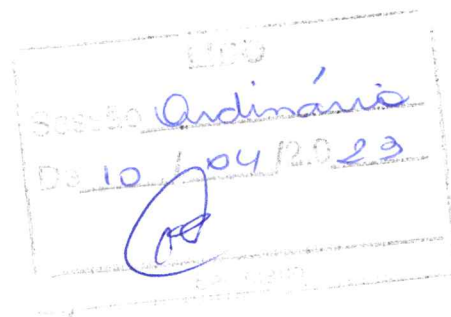 LIDO
Sessão Ordinária
De 10 / 04 /2.0 23